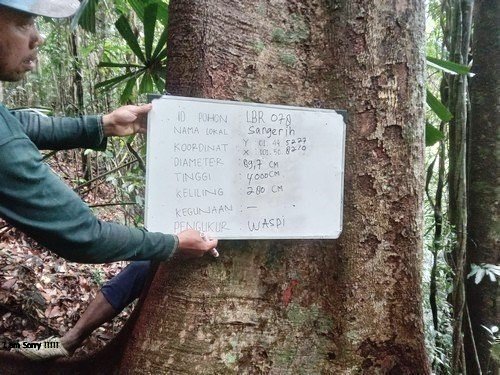 ID POHON : LBR 070
NAMA LOKAL : Sangerih
KOORDINAT : Y : 01. 44. 5277
X : 101. 50. 8270
DIAMETER : 89,7 CM
TINGGI : 4000 CM
KELILING : 280 CM
KEGUNAAN : —
PENGUKUR : WASPI
I am Sorry !!!!!